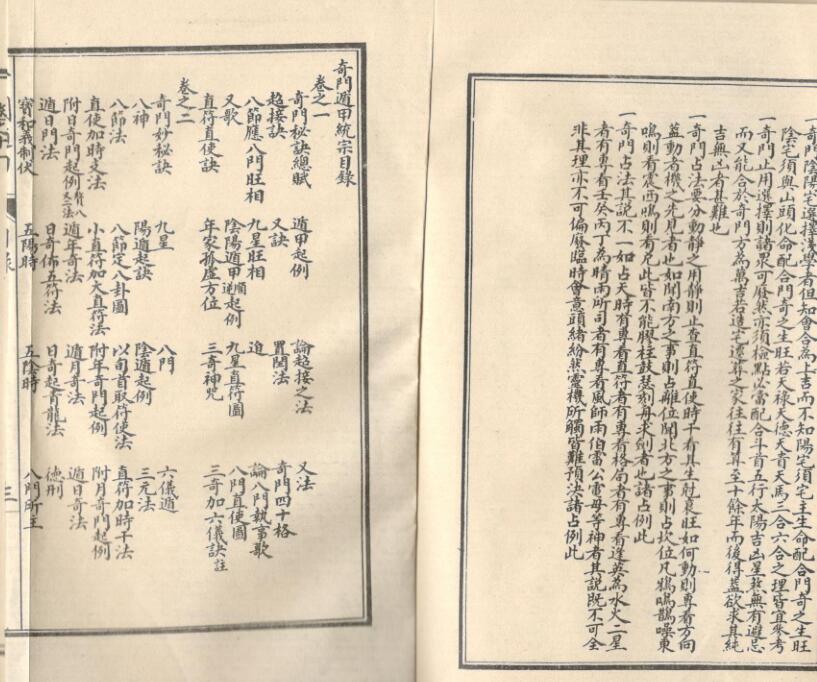 一奇門陰陽宅選擇淺學者但知會合為上吉而不知陽宅須宅主生命配合門奇之生旺
陰宅須與山頭化命配合門奇之生旺若天祿天德天貴天馬三合六合之理皆宜參考
一奇門止用選擇則諸眾可廢然亦須檢點必當配合斗首五行太陽吉凶星煞無有避忌
而又能合於奇門方為萬吉若造宅遷葬之家往往有算至十餘年而後得蓋欲求其純
吉無凶者甚難也
一奇門占法要分動靜之用靜則止查直符直使時干看其生尅衰旺如何動則專看方向
蓋動者機之先見者也如聞南方之事則占離位聞北方之事則占坎位凡鴉鳴鵲噪東
鳴則看震西鳴則看兌此皆不能膠柱鼓瑟刻舟求劍者也諸占例此
一奇門占法其說不一如占天時有專看直符者有專看格局者有專看逢英為水火二星
者有專看壬癸丙丁為晴雨所司者有專看風師雨伯雷公電母等神者其說既不可全
非其理亦不可偏廢臨時會意頭緒紛然靈機所觸皆難預決諸占例此
奇門遁甲統宗目錄
卷之一
奇門秘訣總賦 遁甲起例 論超接之法 又法
超接訣 又訣 置閏法 奇門四十格
八節應八門旺相 九星旺相 迫 論八門執事歌
又歌 陰陽遁甲順逆起例 九星直符圖 八門直使圖
直符直使訣 年家孤虛方位 三奇神咒 三奇加六儀訣註
卷之二
奇門妙秘訣 九星 八門 六儀遁
八神 陽遁起訣 陰遁起例 三元法
八節法 八節定八卦圖 以旬首取符使法 直符加時干法
直使加時支法 小直符加大直符法 附年奇門起例 附月奇門起例
附日奇門起例 遁年奇法 遁月奇法 遁日奇法
遁日門法 日奇佈五符法 日奇起青龍法 德刑
寶和義制伏 五陽時 五陰時 八門所主
三